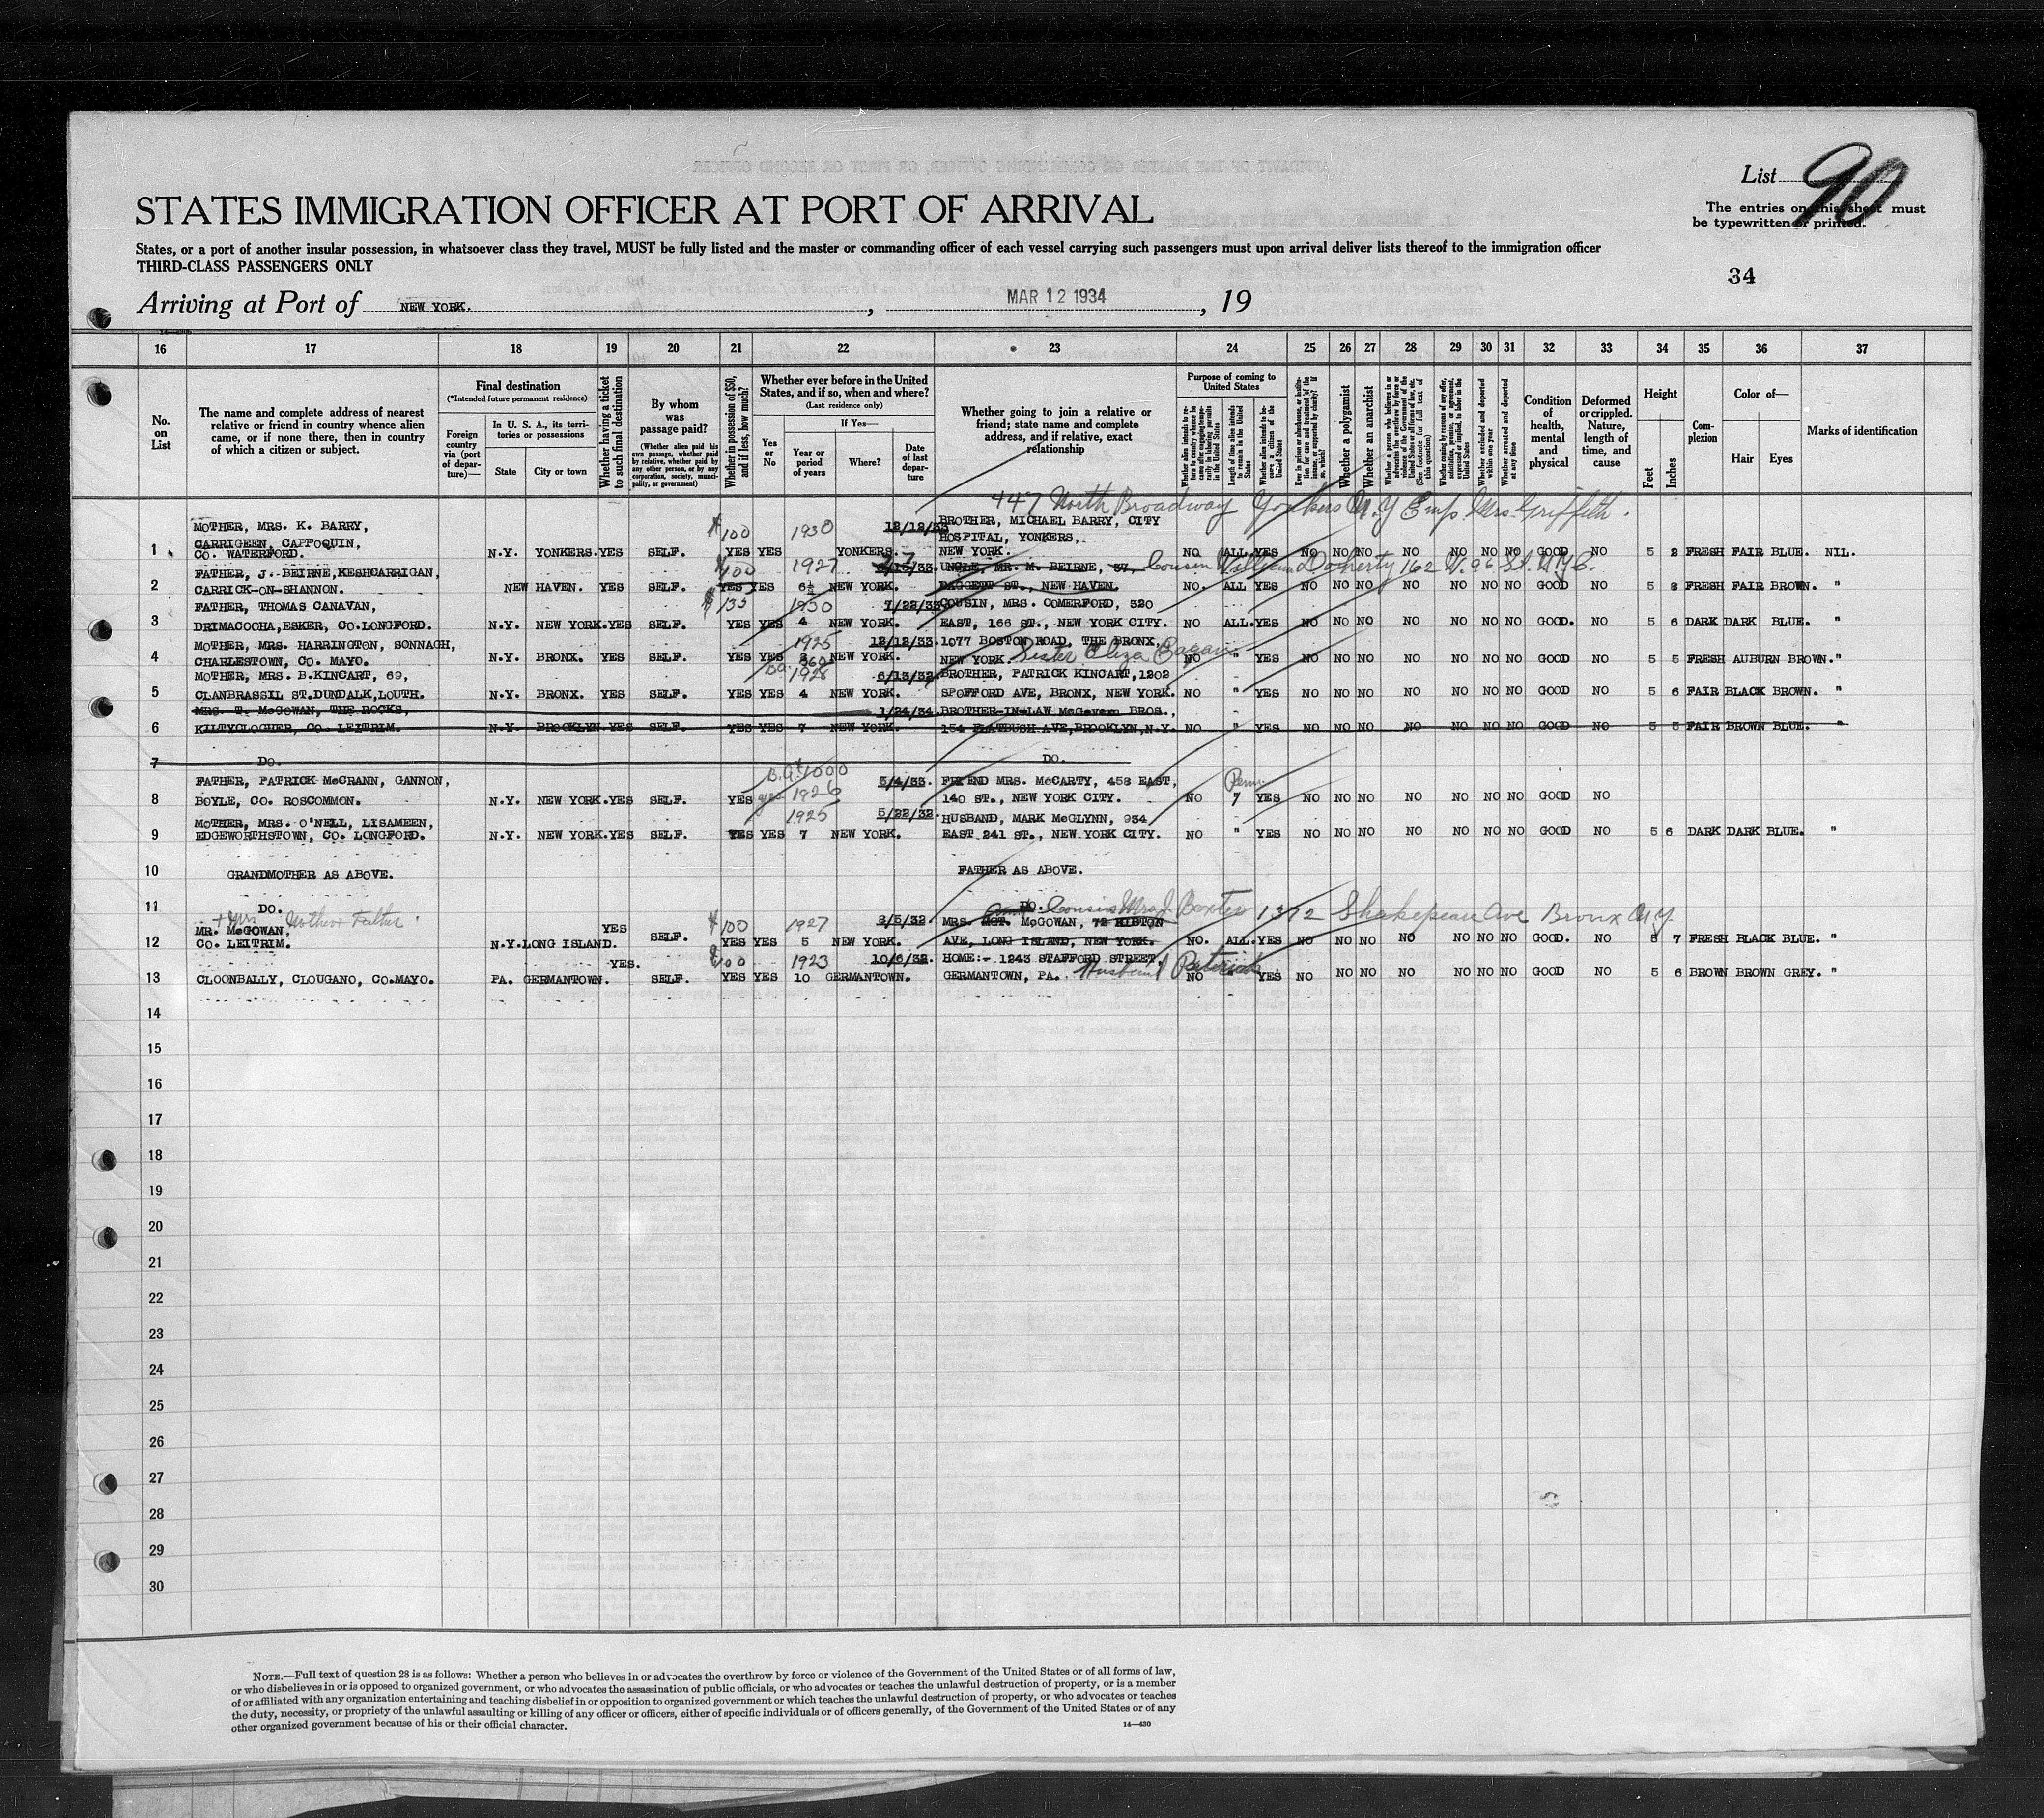 List 90
STATES IMMIGRATION OFFICER AT PORT OF ARRIVAL
The entries on this sheet must
be typewritten or printed.
States, or a port of another insular possession, in whatsoever class they travel, MUST be fully listed and the master or commanding officer of each vessel carrying such passengers must upon arrival deliver lists thereof to the immigration officer
THIRD-CLASS PASSENGERS ONLY
34
Arriving at Port of NEW YORK. , MAR 12 1934 , 19
16 17 18 19 20 21 22 23 24 25 26 27 28 29 30 31 32 33 34 35 36 37
No. on List
The name and complete address of nearest
relative or friend in country whence alien
came, or if none there, then in country
of which a citizen or subject.
Final destination
(*Intended future permanent residence)
Foreign country via (port of departure)—
In U. S. A., its territories or possessions
State City or town
Whether having a ticket to such final destination
By whom was passage paid?
(Whether alien paid his own passage, whether paid by relative, whether paid by any other person, or by any corporation, society, municipality, or government)
Whether in possession of $50, and if less, how much?
Whether ever before in the United
States, and if so, when and where?
(Last residence only)
Yes or No
If Yes—
Year or period of years
Where?
Date of last departure
Whether going to join a relative or
friend; state name and complete
address, and if relative, exact
relationship
Purpose of coming to United States
Whether alien intends to return to country whence he came after engaging temporarily in laboring pursuits in the United States
Length of time alien intends to remain in the United States
Whether alien intends to become a citizen of the United States
Whether a polygamist
Whether an anarchist
Whether excluded and deported within one year
Whether arrested and deported at any time
Condition of health, mental and physical
Deformed or crippled. Nature, length of time, and cause
Height
Feet Inches
Complexion
Color of—
Hair Eyes
Marks of identification
447 North Broadway Yonkers N.Y Emp. Mrs. Griffith.
MOTHER, MRS. K. BARRY, $100 1930 12/12/33 BROTHER, MICHAEL BARRY, CITY
CARRIGEEN, CAPPOQUIN, HOSPITAL, YONKERS,
1 CO. WATERFORD. N.Y. YONKERS. YES SELF. YES YES YONKERS. NEW YORK. NO ALL YES NO NO NO NO NO NO NO GOOD NO 5 2 FRESH FAIR BLUE. NIL.
FATHER, J. BEIRNE, KESHCARRIGAN, $100 1927 UNCLE, MR. M. BEIRNE, 37, Cousin William Doherty 162 W. 96 St. NYC.
2 CARRICK-ON-SHANNON. NEW HAVEN. YES SELF. YES YES 6½ NEW YORK. DAGGETT ST., NEW HAVEN. NO. ALL YES NO NO NO NO NO NO NO GOOD NO 5 8 FRESH FAIR BROWN. "
FATHER, THOMAS CANAVAN, $135 1930 7/22/33 COUSIN, MRS. COMERFORD, 320
3 DRIMACOOHA, ESKER, CO. LONGFORD. N.Y. NEW YORK. YES SELF. YES YES 4 NEW YORK. EAST, 166 ST., NEW YORK CITY. NO ALL. YES NO NO NO NO NO NO NO GOOD. NO 5 6 DARK DARK BLUE. "
MOTHER, MRS. HARRINGTON, SONNAGH, 1925 12/12/33. 1077 BOSTON ROAD, THE BRONX,
4 CHARLESTOWN, CO. MAYO. N.Y. BRONX. YES SELF. YES YES NEW YORK. NEW YORK. Sister Eliza NO " YES NO NO NO NO NO NO NO GOOD NO 5 5 FRESH AUBURN BROWN. "
MOTHER, MRS. B. KINCART, 69, 1928 6/13/32. BROTHER, PATRICK KINCART, 1202
5 CLANBRASSIL ST. DUNDALK, LOUTH. N.Y. BRONX. YES SELF. YES YES 4 NEW YORK. SPOFFORD AVE, BRONX, NEW YORK. NO " YES NO NO NO NO NO NO NO GOOD NO 5 6 FAIR BLACK BROWN. "
MRS. T. McGOWAN, THE ROCKS, 1/24/34. BROTHER-IN-LAW McGovern BROS.,
6 KILTYCLOGHER, CO. LEITRIM. N.Y. BROOKLYN. YES SELF. YES YES 7 NEW YORK. 154 FLATBUSH AVE, BROOKLYN, N.Y. NO " YES NO NO NO NO NO NO NO GOOD NO 5 5 FAIR BROWN BLUE. "
7 DO. DO.
FATHER, PATRICK McCRANN, GANNON, 1926 5/4/33. FRIEND MRS. McCARTY, 458 EAST, Perm
8 BOYLE, CO. ROSCOMMON. N.Y. NEW YORK. YES SELF. YES yes 140 ST., NEW YORK CITY. NO 7 YES NO NO NO NO NO NO NO GOOD NO
MOTHER, MRS. O'NELL, LISAMEEN, 1925 5/22/32. HUSBAND, MARK McGLYNN, 934
9 EDGEWORTHSTOWN, CO. LONGFORD. N.Y. NEW YORK. YES SELF. YES YES 7 NEW YORK. EAST 241 ST., NEW YORK CITY. NO " YES NO NO NO NO NO NO NO GOOD NO 5 6 DARK DARK BLUE. "
10 GRANDMOTHER AS ABOVE. FATHER AS ABOVE.
11 DO. DO. Cousin Mrs J. Baxter 1372 Shakepean Ave Bronx NY
MR. McGOWAN, YES $100 1927 2/5/32 MRS. McGOWAN, 72 HIBTON
12 CO. LEITRIM. N.Y. LONG ISLAND. SELF. YES YES 5 NEW YORK. AVE, LONG ISLAND, NEW YORK. NO. ALL. YES NO NO NO NO NO NO NO GOOD. NO 5 7 FRESH BLACK BLUE. "
YES. $100 1923 10/6/32. HOME:- 1243 STAFFORD STREET,
13 CLOONBALLY, CLOUGANO, CO. MAYO. PA. GERMANTOWN. SELF. YES YES 10 GERMANTOWN. GERMANTOWN, PA. Husband Patrick NO YES NO NO NO NO NO NO NO GOOD NO 5 6 BROWN BROWN GREY. "
14
15
16
17
18
19
20
21
22
23
24
25
26
27
28
29
30
NOTE.—Full text of question 28 is as follows: Whether a person who believes in or advocates the overthrow by force or violence of the Government of the United States or of all forms of law,
or who disbelieves in or is opposed to organized government, or who advocates the assassination of public officials, or who advocates or teaches the unlawful destruction of property, or is a member
of or affiliated with any organization entertaining and teaching disbelief in or opposition to organized government or which teaches the unlawful destruction of property, or who advocates or teaches
the duty, necessity, or propriety of the unlawful assaulting or killing of any officer or officers, either of specific individuals or of officers generally, of the Government of the United States or of any
other organized government because of his or their official character.
14—430